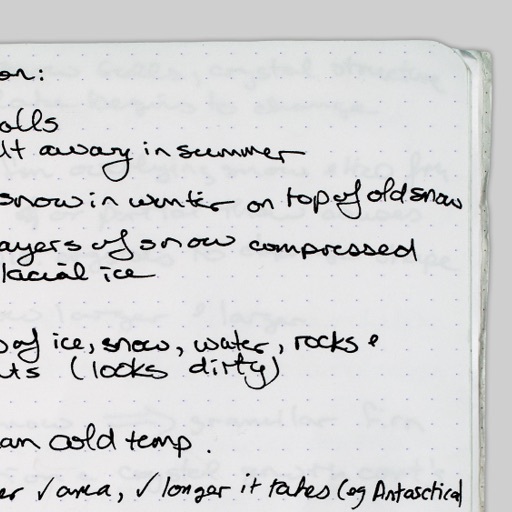 on:
alls
lt away in summer
snow in winter on top of old snow
ayers of snow compressed
lacial ice
of ice, snow, water, rocks &
ts (looks dirty)
an cold temp.
er √ area, √ longer it takes (eg Antasctica)